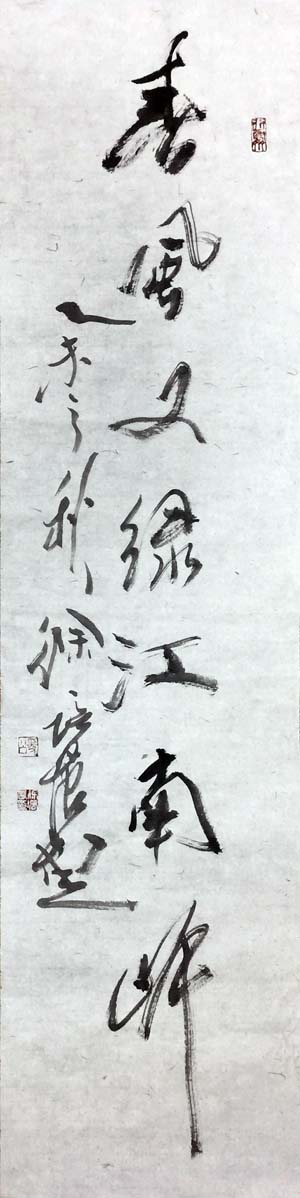 春風又绿江南岸
乙未之秋 徐